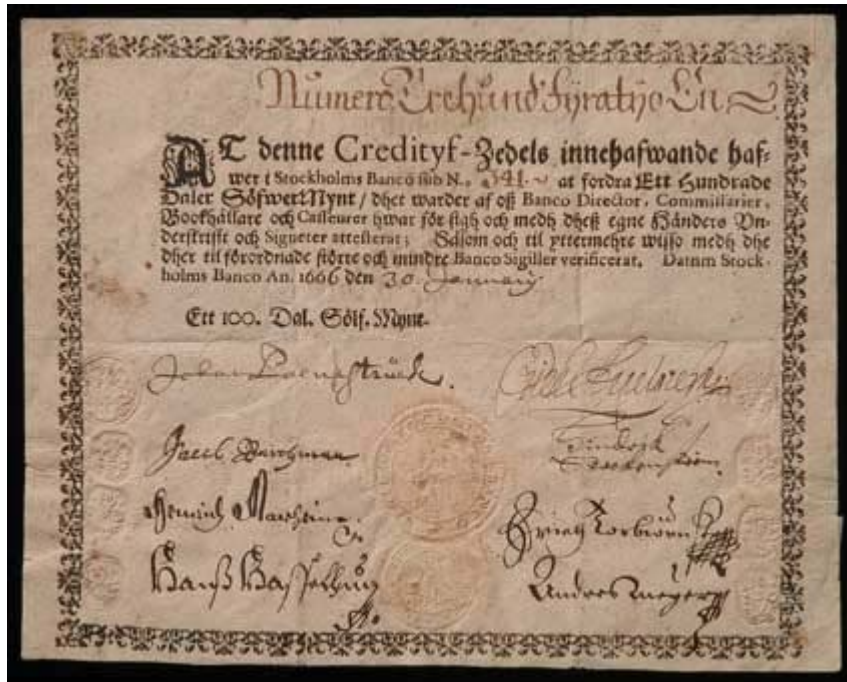 Numero Trehund Fÿratijo En
AT denne Credityf-Zedels innehafwande haf-
wer i Stockholms Banco sub N.. 341. at fordra Ett Hundrade
Daler SöfwerMynt / dhet warder af oß Banco Director, Commissarier,
Bookhållare och Casseurer hwar för sigh och medh dheß egne Händers Vn-
derskrifft och Signeter attesterat; Såsom och til yttermehre wisso medh dhe
dher til förordnade större och mindre Banco Sigiller verificerat. Datum Stock-
holms Banco An. 1666 den 30. January
Ett 100. Dal. Sölf. Mynt.
Johan
Jacob
Hinrich
Hanß
Anders Meyer